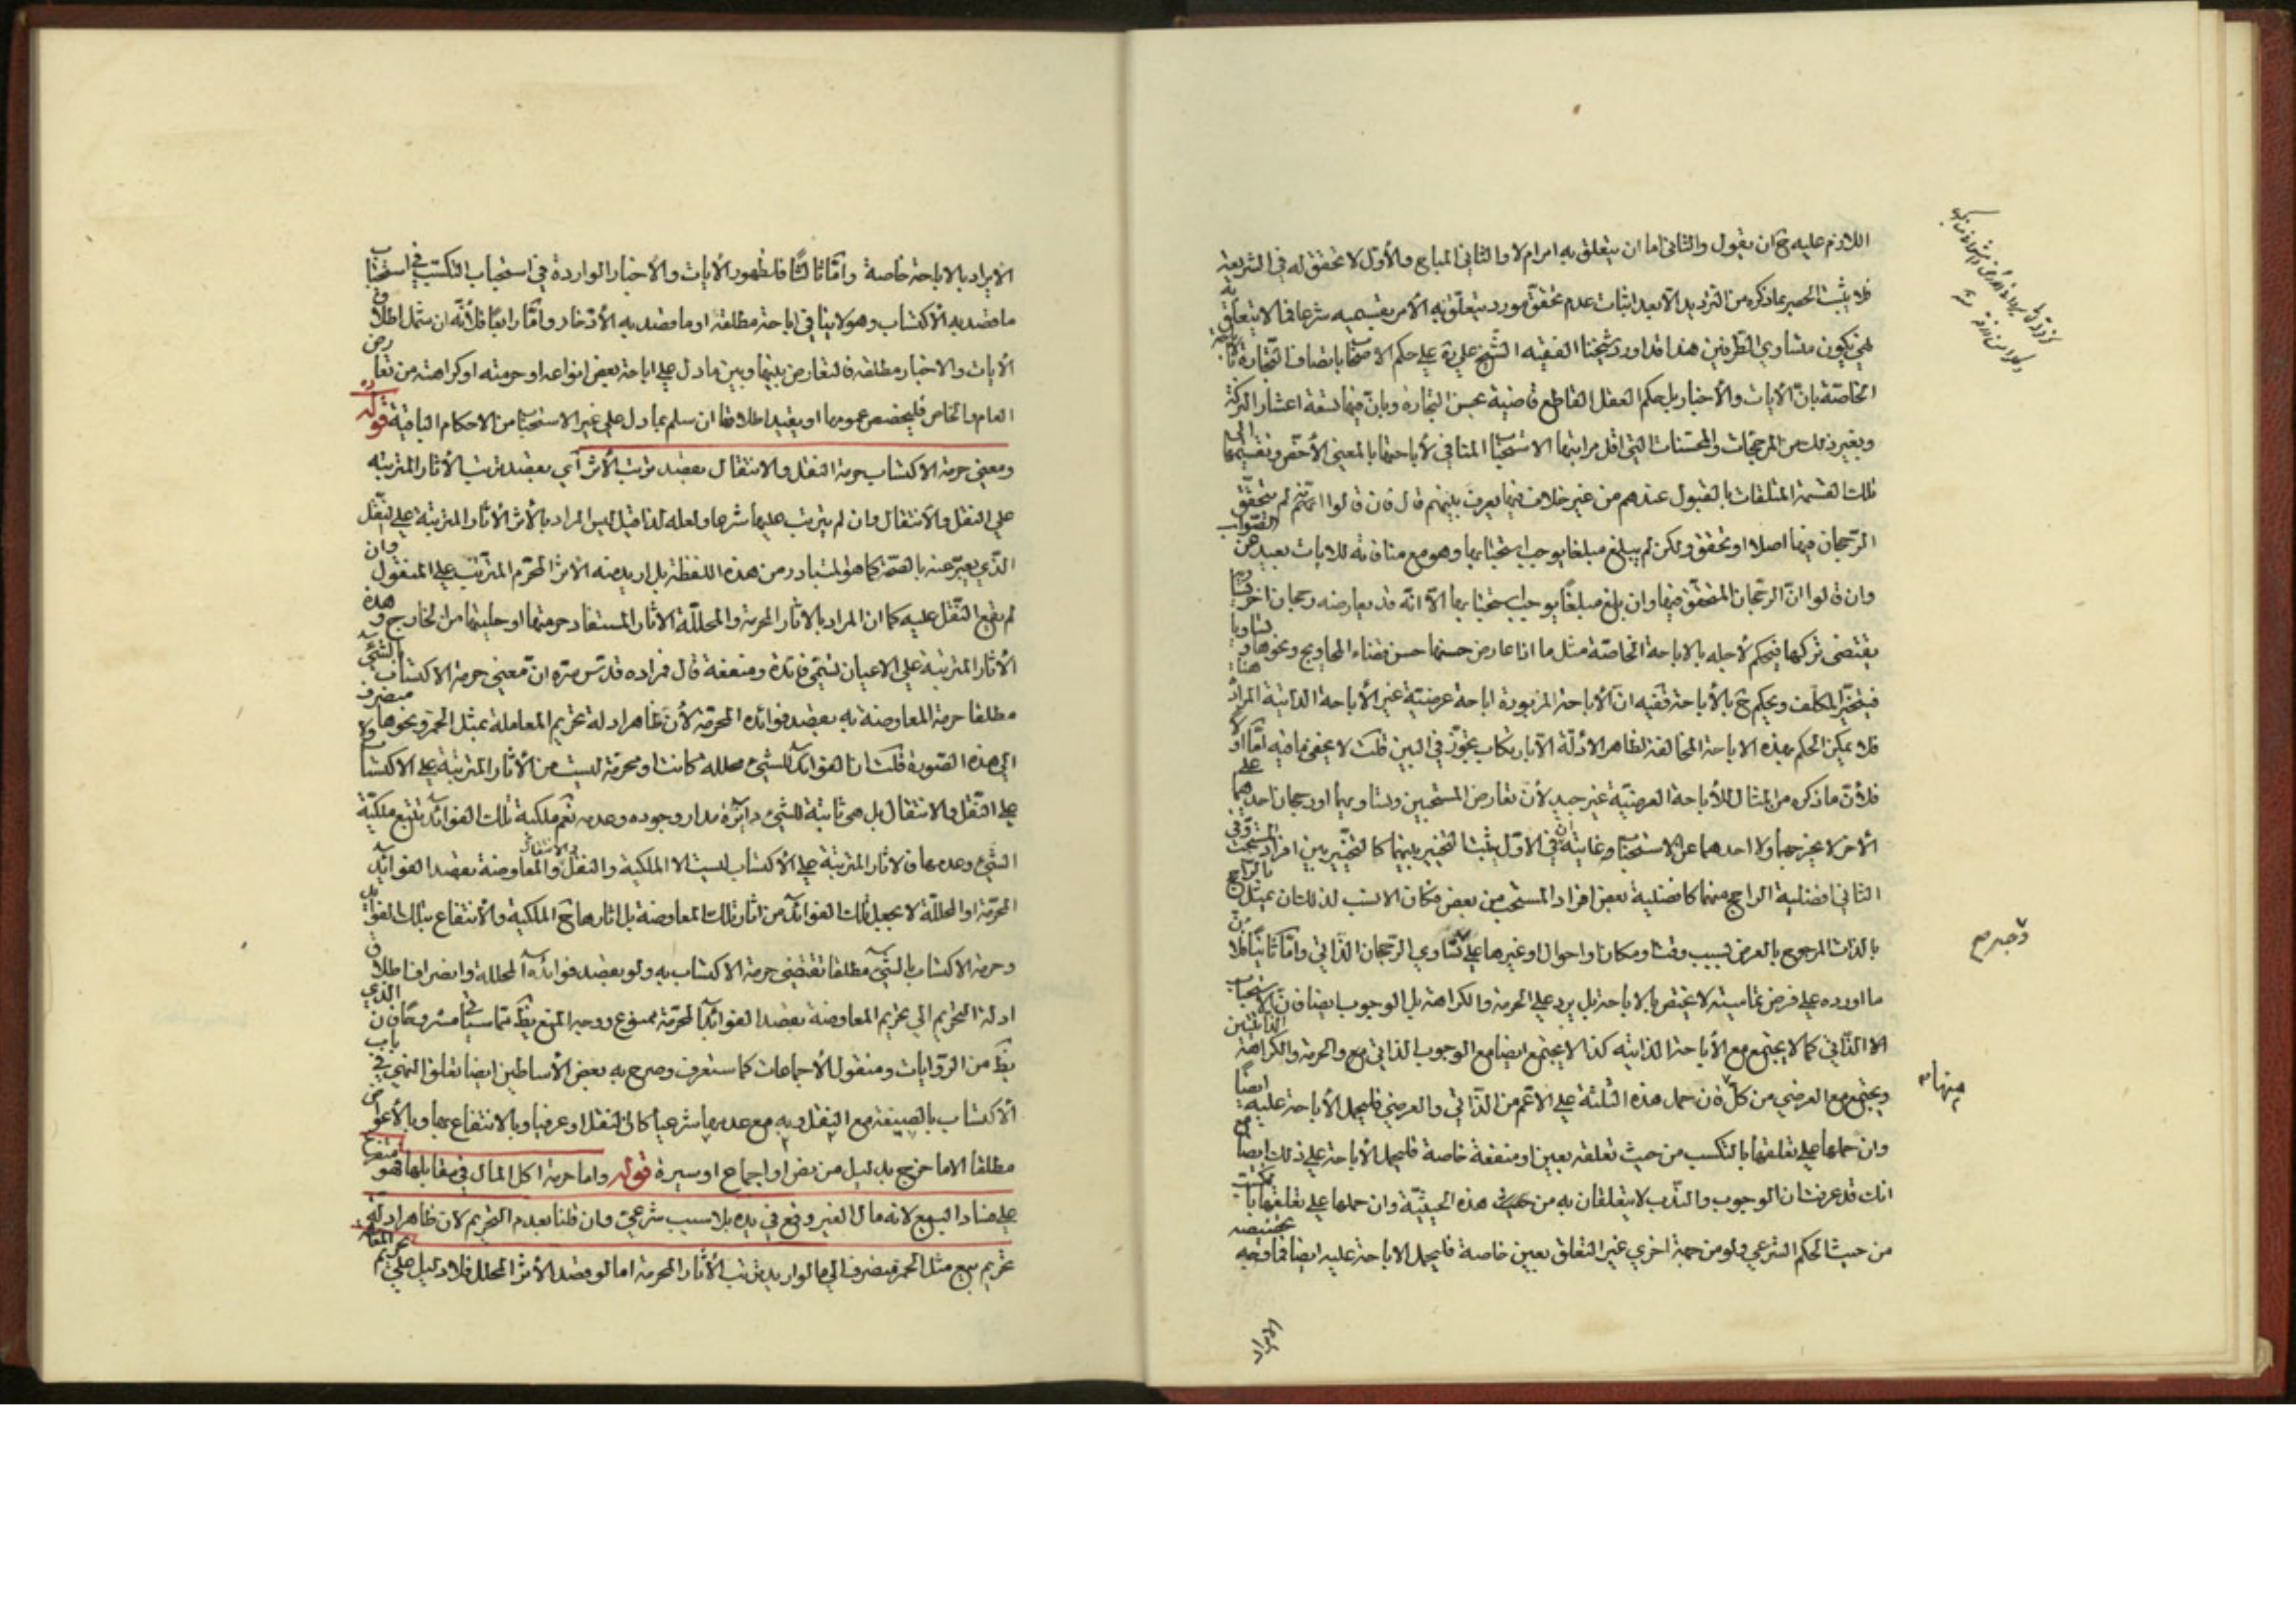 اللازم عليه ح ان يقول والثاني اما ان يتعلق به امر ام لا والثاني المباح والأول لا تحقق له في الشريعة
فلا يثبت الحصر بما ذكره من الترديد الا بعد اثبات عدم تحقق مورد يتعلق به الأمر بقسميه شرعا فما لا يتعلق به
هي يكون متساوي الطرفين هذا قد اورد شيخنا الفقيه الشيخ علي ره على حكم الاصحاب باتصاف التجارة بالاباحة
الخاصة بان الآيات والأخبار بل حكم العقل القاطع قاضية بحسن التجارة وبان فيها تسعة اعشار البركة
وبغير ذلك من المرجحات والمحسنات التي اقل مراتبها الاستحباب المنافي لأباحتها بالمعنى الأخص وتقسيمها الى
تلك القسمة المتلقات بالقبول عندهم من غير خلاف فيها يعرف بينهم قال فان قالوا انه لم يتحقق
الرجحان فيها اصلا او تحقق ولكن لم يبلغ مبلغا يوجب استحبابها وهو مع منافاته للايات بعيد عن الصواب
وان قالوا ان الرجحان المتحقق فيها وان بلغ مبلغا يوجب استحبابها الا انه قد يعارضه رجحان اخر
يقتضى تركها فيحكم لأجله بالاباحة الخاصة مثل ما اذا عارض حسنها حسن قضاء الحاويج ونحوها و تساويا
فيتخير المكلف ويحكم ح بالأباحة ففيه ان الأباحة المزبورة اباحة عرضية غير الأباحة الذاتية المراد هنا
فلا يمكن الحكم بهذه الاباحة المخالفة لظاهر الادلة الا بارتكاب تجوز في البين قلت لا يخفى ما فيه اما اولا
فلأن ما ذكره من المثال للأباحة العرضية غير جيد لأن تعارض المستحبين وتساويهما او رجحان احدهما على
الأخر لا يخرجهما ولا احدهما عن الاستحباب وغايته ان في الاول يثبت التخيير بينهما كالتخيير بين افراد المستحب وفي
الثاني افضلية الراجح منهما كافضلية بعض افراد المستحب من بعض فكان الانسب لذلك ان يمثل بالراجح
بالذات المرجوح بالعرض بسبب وقت او مكان او احوال او غيرها على تساوي الرجحان الذاتي واما ثانيا فلان
ما اورده على فرض تماميته لا يختص بالاباحة بل يرد على الحرمة والكراهة بل الوجوب ايضا فان الاستحباب
الا الذاتي كما لا يجتمع مع الأباحة الذاتية كذا لا يجتمع ايضا مع الوجوب الذاتي مع والحرمة والكراهة الذاتيتين
ويجتمع مع العرضي من كل فان حمل هذه الثلثة على الاعم من الذاتي والعرضي فليحمل الأباحة عليه ايضا
وان حملها على تعلقها بالتكسب من حيث تعلقه بعين او منفعة خاصة فليحمل الأباحة على ذلك ايضا مع
انك قد عرفت ان الوجوب والندب لا يتعلقان به من حيث هذه الحيثية وان حملها على تعلقها بالتكسب
من حيث الحكم الشرعي ولو من جهة اخرى غير التعلق بعين خاصة فليحمل الاباحة عليه ايضا فما وجه تخصيصه
الايراد
وجه م
منها م
الايراد بالاباحة خاصة واما ثالثا فلظهور الأيات والأخبار الواردة في استحباب التكسب في استحباب
ما قصد به الاكتساب وهو لا ينافي اباحة مطلقه او ما قصد به الأدخار واما رابعا فلأنه ان سلم اطلاق
الأيات والاخبار مطلقه فالتعارض بينها وبين ما دل على اباحة بعض انواعه او حرمته او كراهته من تعارض
العام والخاص فليخصص عمومها او يقيد اطلاقها ان سلم بما دل على غير الاستحباب من الاحكام الباقية قوله ره
ومعنى حرمة الاكتساب حرمة النقل والانتقال بقصد ترتب الأثر اي بقصد ترتب الأثار المترتبة
على النقل والأنتقال وان لم يترتب عليها شرعا ولعله لذا قيل ليس المراد بالأثر الأثار المترتبة على النقل
الذي يعبر عنه بالصحة كما هو المتبادر من هذه اللفظة بل اريد منه الاثر المحرم المترتب على المنقول وان
لم يقع النقل عليه كما ان المراد بالاثار المحرمة والمحللة الاثار المستفاد حرمتها او حليتها من الخارج و هذه
الأثار المترتبة على الاعيان تسمى فائدة ومنفعة قال فمراده قدس سره ان معنى حرمة الاكتساب بالشيء
مطلقا حرمة المعاوضة به بقصد فوائده المحرمة لأن ظاهر ادلة تحريم المعاملة بمثل الخمر ونحوها منصرف
الى هذه الصورة قلت ان الفوائد للشيء محللة كانت او محرمة ليست من الأثار المترتبة على الاكتساب ولا
على النقل والانتقال بل هي ثابتة للشيء دائرة مدار وجوده وعدمه نعم ملكية تلك الفوائد تتبع ملكية
الشيء وعدمها فالاثار المترتبة على الأكتساب ليست الا الملكية والنقل والانتقال والمعاوضة بقصد الفوائد
المحرمة او المحللة لا يجعل تلك الفوائد من اثار تلك المعاوضة بل اثارها ح الملكية والأنتفاع بتلك الفوائد بل
وحرمة الاكتساب بالشيء مطلقا تقتضي حرمة الاكتساب به ولو بقصد فوائده المحللة وانصراف اطلاق
ادلة التحريم الى تحريم المعاوضة بقصد الفوائد المحرمة ممنوع ووجه المنع يظهر مما سيأتي مشروحا فان الذي
يظ من الروايات ومنقول الأجماعات كما ستعرف وصرح به بعض الأساطين ايضا تعلق النهي في باب
الأكتساب بالصيغة مع النقل وبه مع عدمها شرعيا كان النقل او عرفيا وبالانتفاع بها وبالأعواض
مطلقا الا ما خرج بدليل من نص او اجماع او سيرة قوله واما حرمة اكل المال في مقابلها فهو متفرع
على فساد البيع لانه مال الغير وقع في يده بلا سبب شرعي وان قلنا بعدم التحريم لان ظاهر ادلة
تحريم بيع مثل الخمر منصرف الى ما لو اريد ترتب الأثار المحرمة اما لو قصد الأثر المحلل فلا دليل على تحريم المعاملة